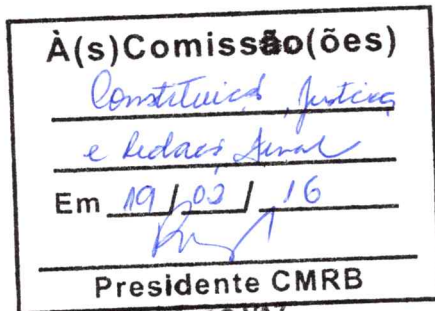 À(s)Comissão(ões)
Constituição, Justiça
e Redação Final
Em 19/02/16
Presidente CMRB